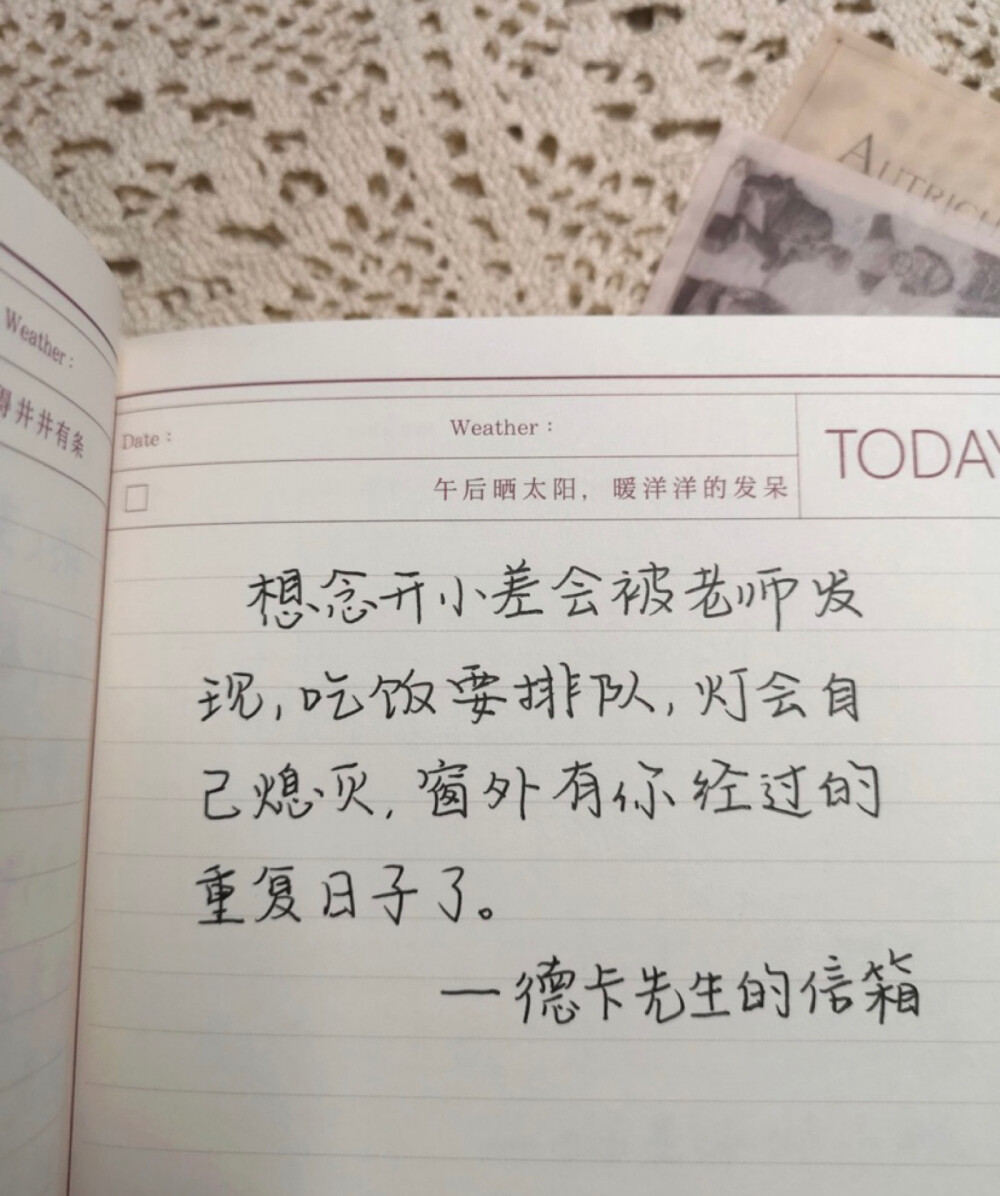 AUTRICH
Weather：
得井井有条
Date：
Weather：
TODAY
午后晒太阳，暖洋洋的发呆
想念开小差会被老师发
现，吃饭要排队，灯会自
己熄灭，窗外有你经过的
重复日子了。
—德卡先生的信箱